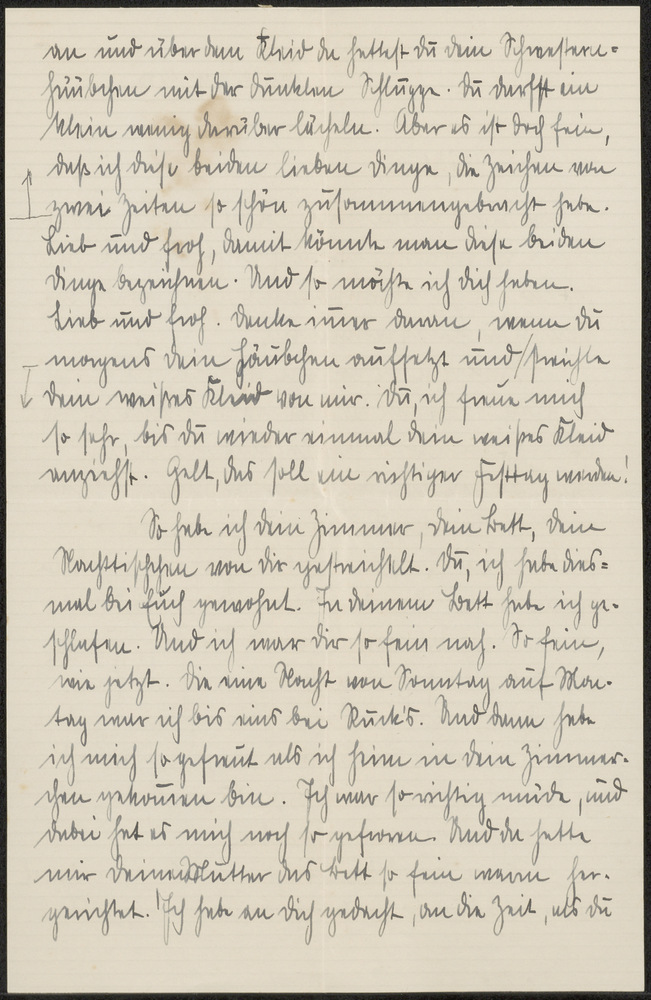 an und über dem Kleid da hattest du dein Schwestern-
häubchen mit der dunklen Schluppe. Du darfst ein
klein wenig darüber lächeln. Aber es ist doch fein,
daß ich diese beiden lieben Dinge, die Zeichen von
zwei Zeiten so schön zusammengebracht habe.
Lieb und froh, damit könnte man diese beiden
Dinge bezeichnen. Und so möchte ich dich haben.
Lieb und froh. Denke im̄er daran, wenn du
morgens dein Häubchen aufsetzt und streichle
dein weißes Kleid von mir. Du, ich freue mich
so sehr, bis du wieder einmal dein weißes Kleid
anziehst. Gelt, das soll ein richtiger Festtag werden!
So habe ich dein Zimmer, dein Bett, dein
Nachttischchen von dir gestreichelt. Du, ich habe dies-
mal bei Euch gewohnt. In deinem Bett habe ich ge-
schlafen. Und ich war dir so fein nah. So fein,
wie jetzt. Die eine Nacht von Sonntag auf Mon-
tag war ich bis eins bei Ruck's. Und dann habe
ich mich so gefreut als ich heim in dein Zimmer-
chen gekom̄en bin. Ich war so richtig müde, und
dabei hat es mich noch so gefroren. Und da hatte
mir deine Mutter das Bett so fein warm her-
gerichtet. Ich habe an dich gedacht, an die Zeit, als du